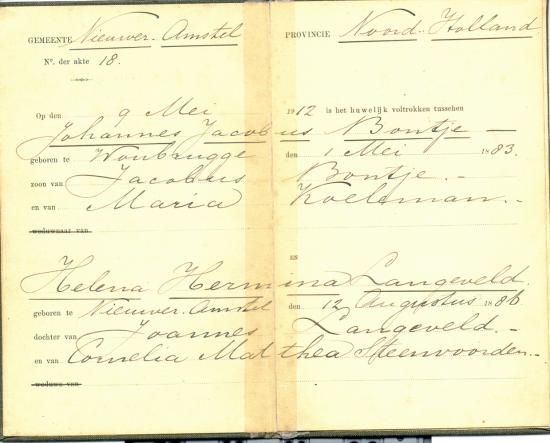 GEMEENTE Nieuwer-Amstel PROVINCIE Noord-Holland
No. der akte 18.
Op den 9 Mei 1912 is het huwelijk voltrokken tusschen
Johannes Jacobus Bontje —
geboren te Woubrugge den 1 Mei 1883.
zoon van Jacobus Bontje. -
en van Maria Koeleman. -
weduwnaar van
EN
Helena Hermina Langeveld.
geboren te Nieuwer-Amstel den 12 Augustus 1886
dochter van Joannes Langeveld. -
en van Cornelia Matthea Steenvoorden. -
weduwe van